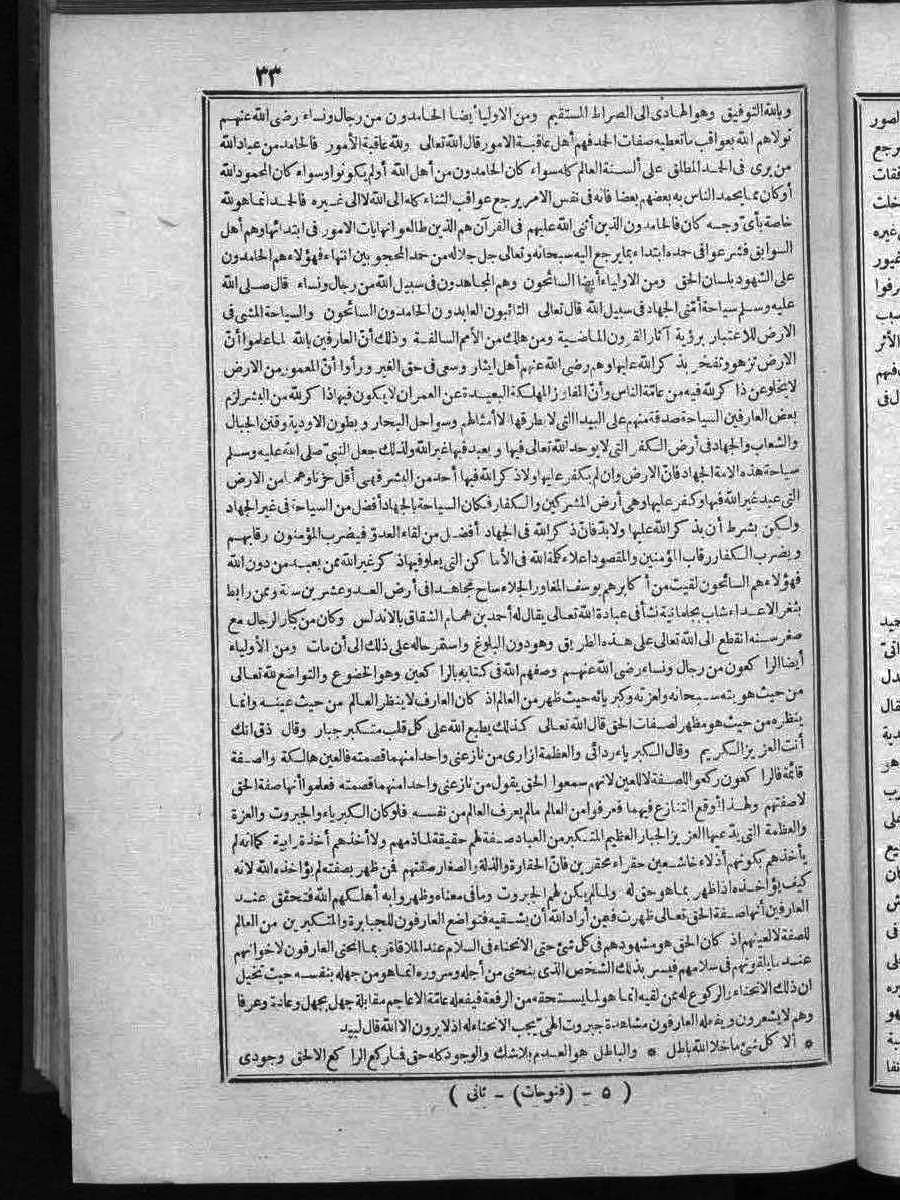 ٣٣
وبالله التوفيق وهو الهادي الى الصراط المستقيم ومن الاولياء أيضا الحامدون من رجال ونساء رضى الله عنهم
تولاهم الله بعواقب ما تعطيه صفات الحمد فهم أهل عاقبة الامور قال الله تعالى ولله عاقبة الأمور فالحامد من عباد الله
من يرى فى الحمد المطلق على ألسنة العالم كله سواء كان الحامدون من أهل الله أولم يكونوا وسواء كان المحمود الله
أو كان مما يحمد الناس به بعضهم بعضا فانه فى نفس الامر يرجع عواقب الثناء كله الى الله لا الى غيره فالحمد انما هو لله
خاصة بأى وجه كان فالحامدون الذين أثنى الله عليهم فى القرآن هم الذين طالعوا نهايات الامور فى ابتدائها وهم أهل
السوابق فشرعوا فى حمده ابتداء بما يرجع اليه سبحانه وتعالى جل جلاله من حمد المحجوبين انتهاء فهؤلاء هم الحامدون
على الشهود بلسان الحق ومن الاولياء أيضا السائحون وهم المجاهدون فى سبيل الله من رجال ونساء قال صلى الله
عليه وسلم سياحة أمتى الجهاد فى سبيل الله قال تعالى التائبون العابدون الحامدون السائحون والسياحة المشى فى
الارض للاعتبار برؤية آثار القرون الماضية ومن هلك من الأمم السالفة وذلك أن العارفين بالله لما علموا أن
الارض تزهو وتفخر بذكر الله عليها وهم رضى الله عنهم أهل ايثار وسعى فى حق الغير ورأوا أن المعمور من الارض
لا يخلو عن ذاكر لله فيه من عامة الناس وأن المفاوز المهلكة البعيدة عن العمران لا يكون فيها ذاكر لله من البشر لزم
بعض العارفين السياحة صدقة منهم على البيد التى لا يطرقها الا أمثالهم وسواحل البحار وبطون الاودية وقنن الجبال
والشعاب والجهاد فى أرض الكفر التى لا يوحد الله تعالى فيها ويعبد فيها غير الله ولذلك جعل النبى صلى الله عليه وسلم
سياحة هذه الامة الجهاد فان الارض وان لم يكفر عليها ولا ذكر الله فيها أحد من البشر فهى أقل حزنا وهما من الارض
التى عبد غير الله فيها وكفر عليها وهى أرض المشركين والكفار فكان السياحة بالجهاد أفضل من السياحة فى غير الجهاد
ولكن بشرط أن يذكر الله عليها ولا بد فان ذكر الله فى الجهاد أفضل من لقاء العدو فيضرب المؤمنون رقابهم
ويضرب الكفار رقاب المؤمنين والمقصود اعلاء كلمة الله فى الأماكن التى يعلو فيها ذكر غير الله ممن يعبد من دون الله
فهؤلاء هم السائحون لقيت من أكابرهم يوسف المغاور الجلاء ساح مجاهدا فى أرض العدو عشرين سنة وممن رابط
بثغر الاعداء شاب بجلمانية نشأ فى عبادة الله تعالى يقال له أحمد بن همام الشقاق بالاندلس وكان من كبار الرجال مع
صغر سنه انقطع الى الله تعالى على هذه الطريق وهو دون البلوغ واستمر حاله على ذلك الى أن مات ومن الأولياء
أيضا الراكعون من رجال ونساء رضى الله عنهم وصفهم الله فى كتابه بالراكعين وهو الخضوع والتواضع لله تعالى
من حيث هويته سبحانه ولعزته وكبريائه حيث ظهر من العالم اذ كان العارف لا ينظر العالم من حيث عينه وانما
ينظره من حيث هو مظهر لصفات الحق قال الله تعالى كذلك يطبع الله على كل قلب متكبر جبار وقال ذق انك
أنت العزيز الكريم وقال الكبرياء ردائى والعظمة ازارى من نازعنى واحدا منهما قصمته فالعين هالكة والصفة
قائمة فالراكعون ركعوا للصفة لا للعين لانهم سمعوا الحق يقول من نازعنى واحدا منهما قصمته فعلموا أنها صفة الحق
لا صفتهم ولهذا أوقع التنازع فيهما فعرفوا من العالم ما لم يعرف العالم من نفسه فلو كان الكبرياء والجبروت والعزة
والعظمة التى يدعيها العزيز الجبار العظيم المتكبر من العباد صفة لهم حقيقة لما ذمهم ولا أخذهم أخذة رابية كما انه لم
يأخذهم بكونهم أذلاء خاشعين حقراء محقرين فان الحقارة والذلة والصغار صفتهم فمن ظهر بصفته لم يؤاخذه الله لانه
كيف يؤاخذه اذا ظهر بما هو حق له ولما لم يكن لهم الجبروت وما فى معناه وظهروا به أهلكهم الله فتحقق عند
العارفين أنها صفة الحق تعالى ظهرت فيمن أراد الله أن يشقيه فتواضع العارفون للجبابرة والمتكبرين من العالم
للصفة لا لعينهم اذ كان الحق هو مشهودهم فى كل شئ حتى الانحناء فى السلام عند الملاقاة ربما انحنى العارفون لاخوانهم
عند ما يلقونهم فى سلامهم فيسر بذلك الشخص الذى ينحنى من أجله وسروره انما هو من جهله بنفسه حيث تخيل
ان ذلك الانحناء والركوع له ممن لقيه انما هو لما يستحقه من الرفعة فيفعله عامة الاعاجم مقابلة جهل بجهل وعادة وعرفا
وهم لا يشعرون ويفعله العارفون مشاهدة جبروت الهى يجب الانحناء له اذ لا يرون الا الله قال لبيد
* ألا كل شئ ما خلا الله باطل * والباطل هو العدم بلا شك والوجود كله حق فما ركع الراكع الا لحق وجودى
( ٥ - (فتوحات) - ثانى )